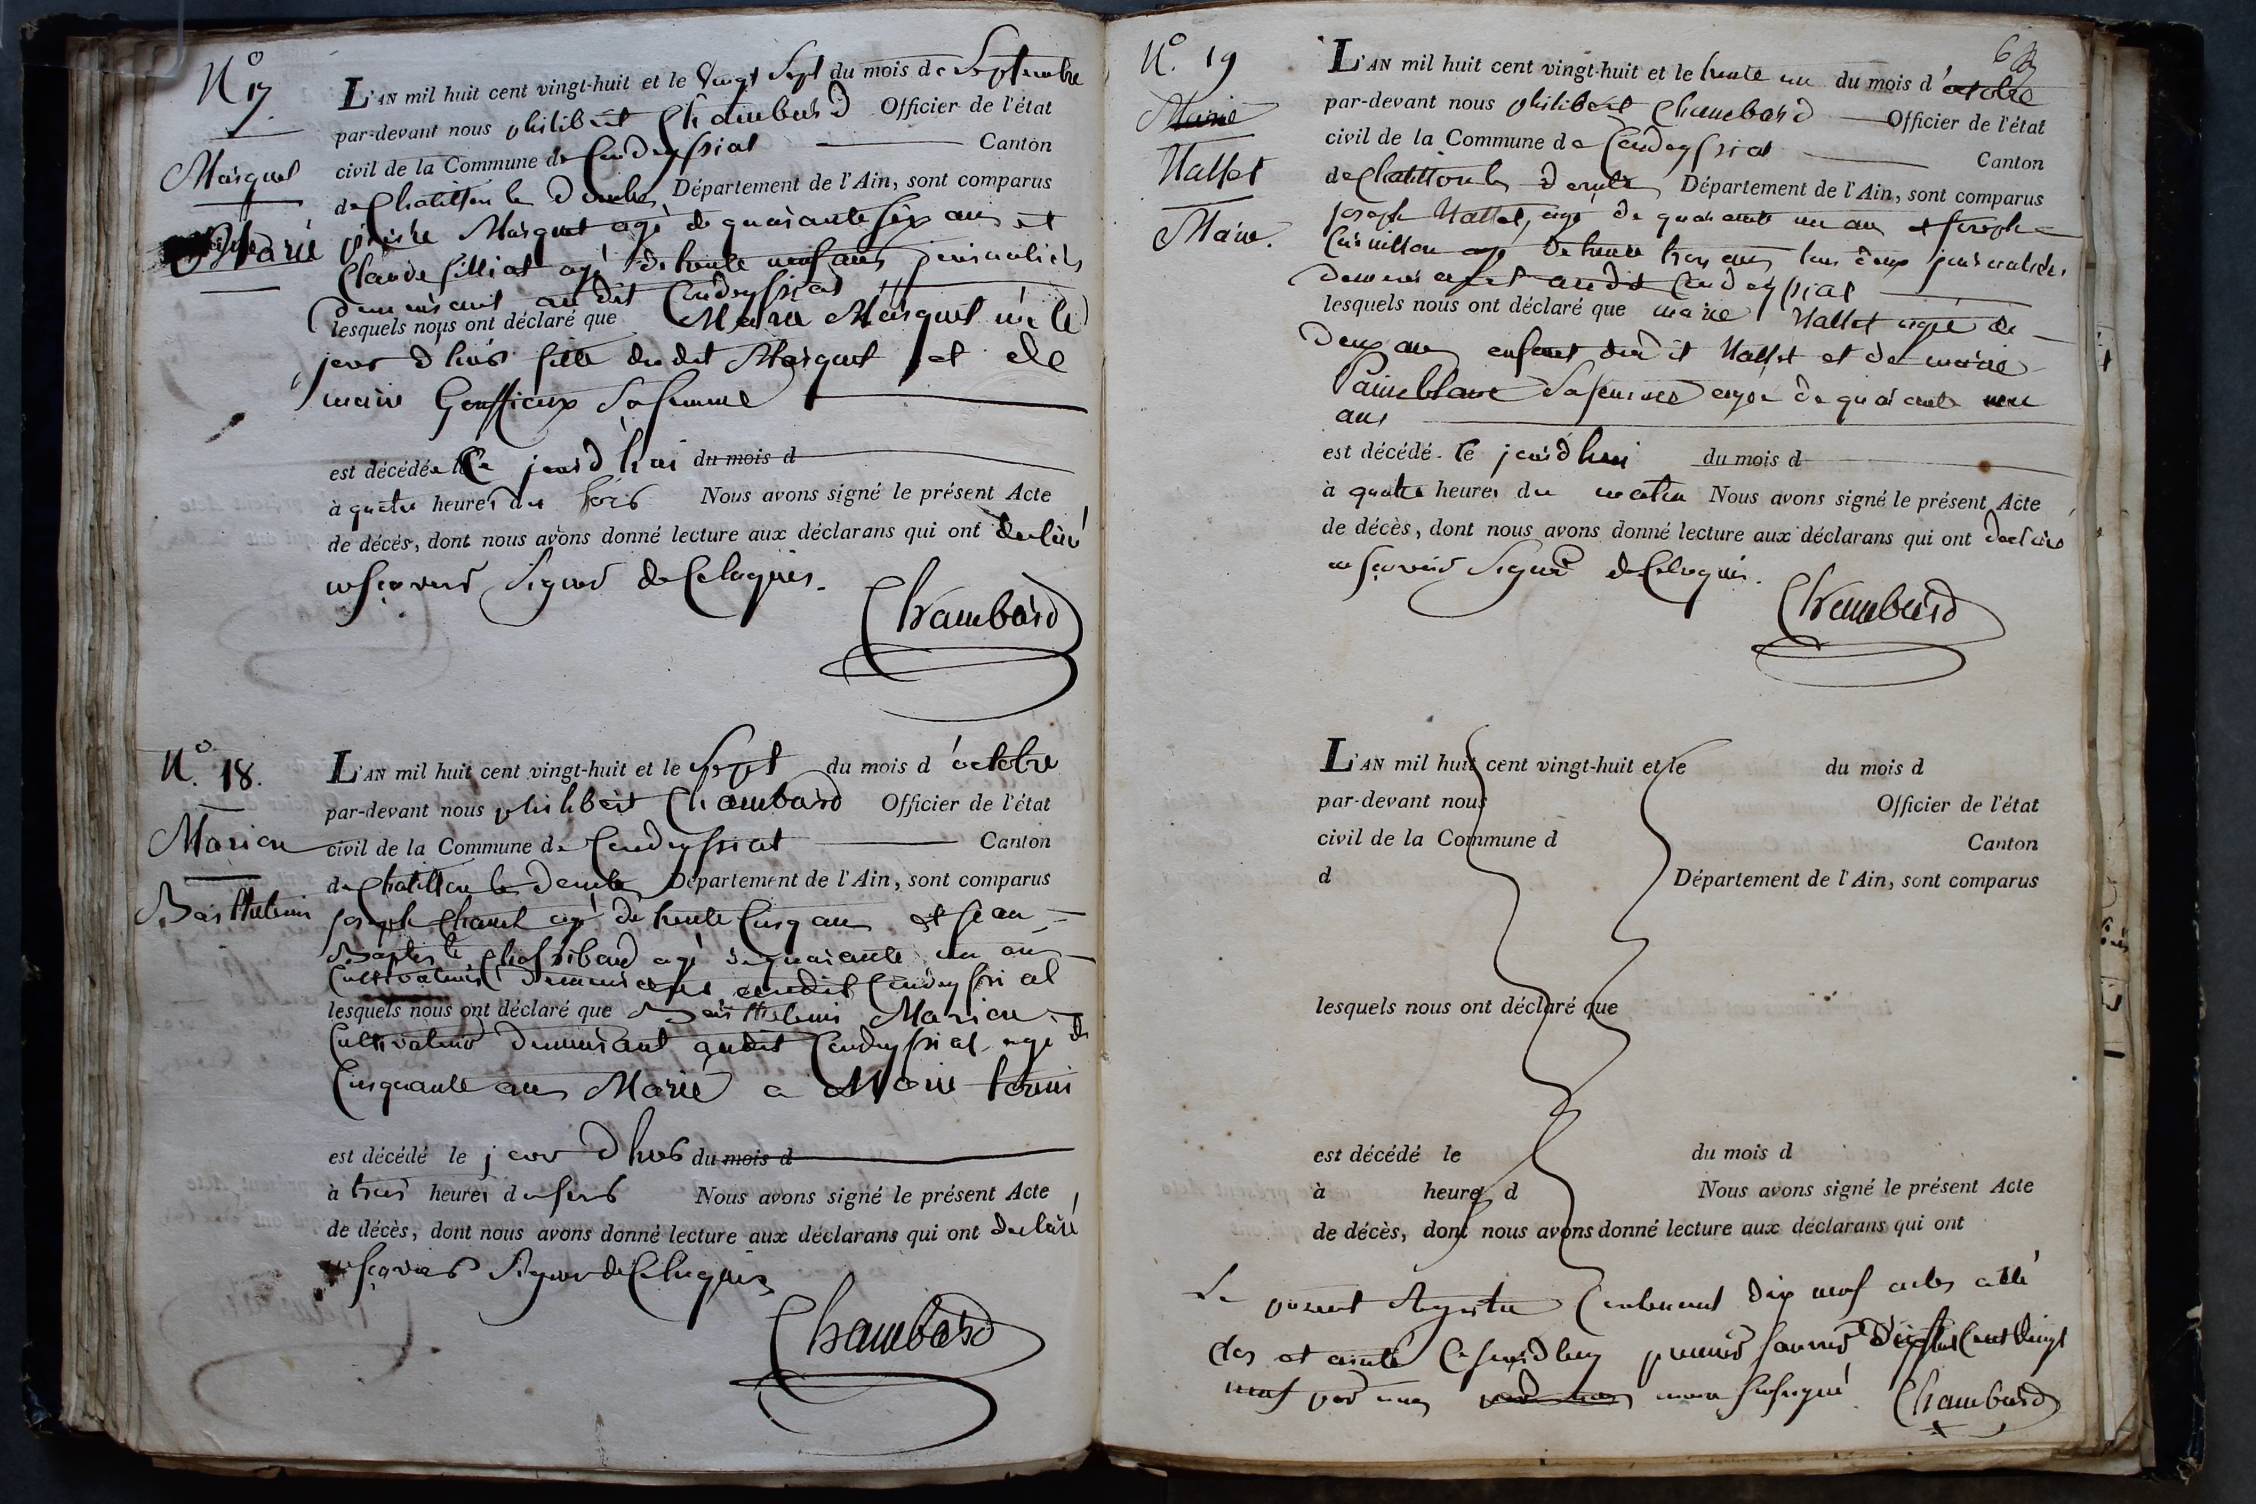 N° 17.
Marquet
Marie
L'AN mil huit cent vingt-huit et le vingt sept du mois de Septembre
par-devant nous philibert Chambard Officier de l'état
civil de la Commune de Condeyssiat Canton
de Chatillon les Dombes Département de l'Ain, sont comparus
pierre Marquet agé de quarante six ans et
Claude filliat agé de trente neuf ans journaliers
demeurant au dit Condeyssiat
lesquels nous ont déclaré que Marie Marquet née le
jour d'huis fille du dit Marquet et de
marie Gouffieux sa femme
est décédée le Ce jourd'hui du mois d
à quatre heures du soir Nous avons signé le présent Acte
de décès, dont nous avons donné lecture aux déclarans qui ont declaré
ne sçavoir signer de Ce Requis.
Chambard
N° 18.
Marion
Barthelemi
L'AN mil huit cent vingt-huit et le sept du mois d'octobre
par-devant nous philibert Chambard Officier de l'état
civil de la Commune de Condeyssiat Canton
de Chatillon les Dombes Département de l'Ain, sont comparus
joseph Chanel agé de trente Cinq ans et jean
Baptiste agé de quarante un ans
Cultivateurs demeurants audit Condeyssiat
lesquels nous ont déclaré que Barthelemi Marion
Cultivateur demeurant audit Condeyssiat agé de
Cinquante ans Marié a Marie
est décédé le jour d'huis du mois d
à trois heures du soir Nous avons signé le présent Acte
de décès, dont nous avons donné lecture aux déclarans qui ont declaré
ne sçavoir signer de Ce Requis
Chambard
63
N° 19
Marie
Vallet
Marie.
L'AN mil huit cent vingt-huit et le trente un du mois d'octobre
par-devant nous philibert Chambard Officier de l'état
civil de la Commune de Condeyssiat Canton
de Chatillon les Dombes Département de l'Ain, sont comparus
joseph Vallet, agé de quarante un ans et joseph
agé de trente trois ans tous deux journaliers
demeurant audit Condeyssiat
lesquels nous ont déclaré que marie Vallet agée de
deux ans enfant dudit Vallet et de marie
Paimblanc sa femme agée de quarante un
ans
est décédé le jourd'hui du mois d
à quatre heures du matin Nous avons signé le présent Acte
de décès, dont nous avons donné lecture aux déclarans qui ont declaré
ne sçavoir signer de Ce Requis.
Chambard
L'AN mil huit cent vingt-huit et le du mois d
par-devant nous Officier de l'état
civil de la Commune d Canton
d Département de l'Ain, sont comparus
lesquels nous ont déclaré que
est décédé le du mois d
à heures d Nous avons signé le présent Acte
de décès, dont nous avons donné lecture aux déclarans qui ont
Le present Registre Contenant dix neuf actes a été
clos et arreté Ce jourd'huy premier janvier dix huit Cent vingt
neuf par nous maire soussigné. Chambard